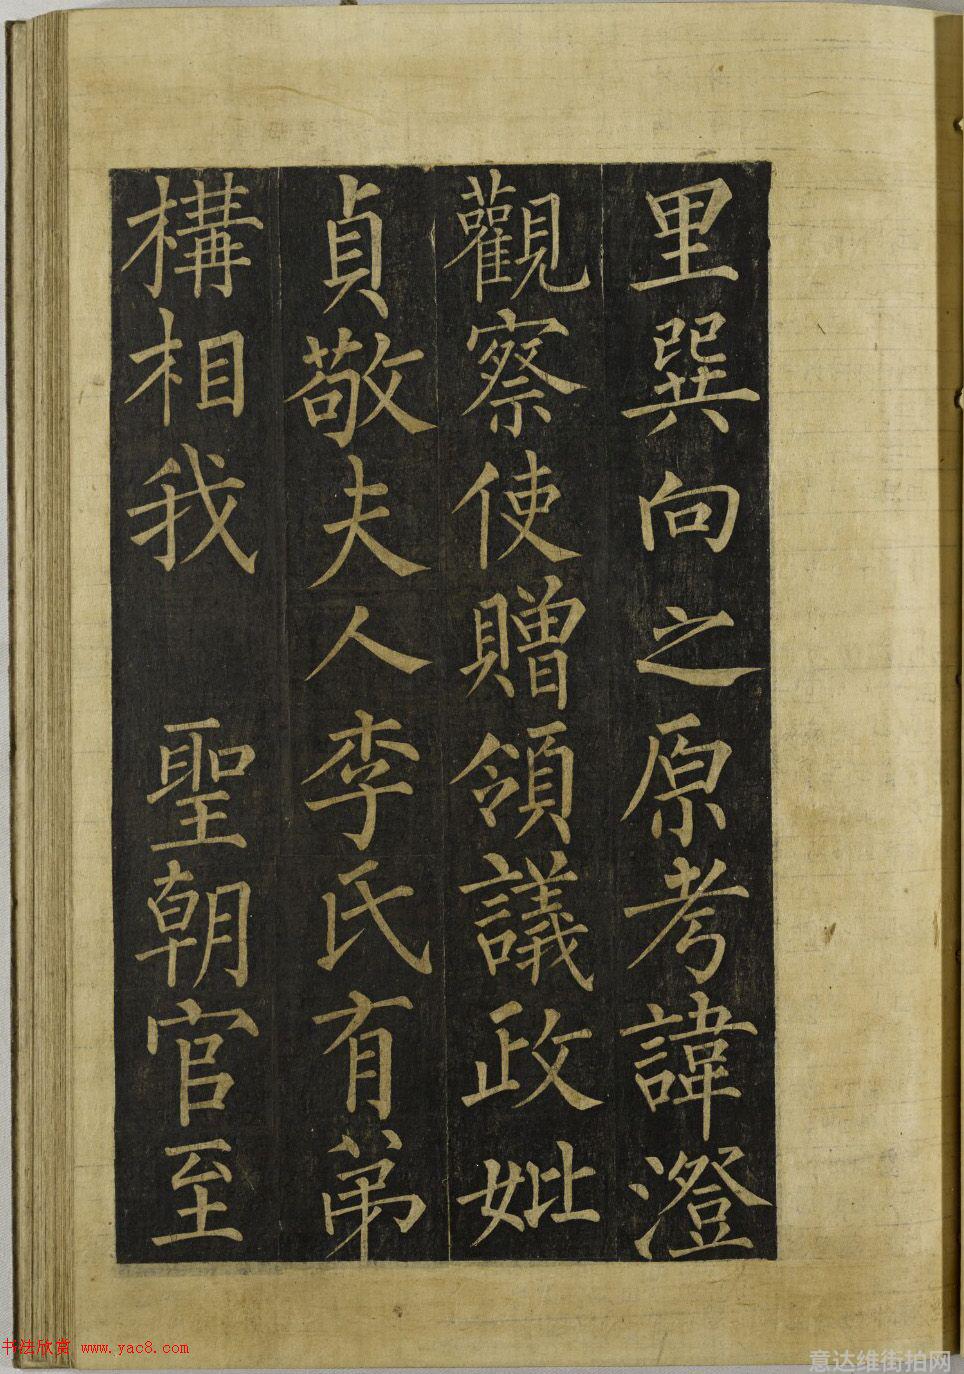 里巽向之原考諱澄
觀察使贈領議政妣
貞敬夫人李氏有弟
構相我 聖朝官至
书法欣赏 www.yac8.com
意达维街拍网